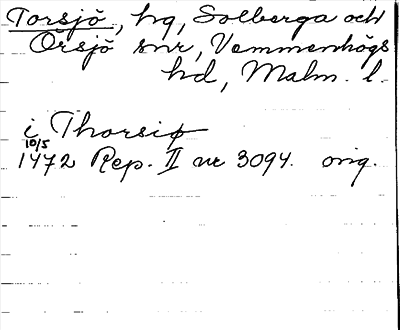 Torsjö, hg, Solberga och
Örsjö snr, Vemmenhögs
hd, Malm. l.
i Thorsiø
10/5
1472 Rep. II nr 3094. orig.